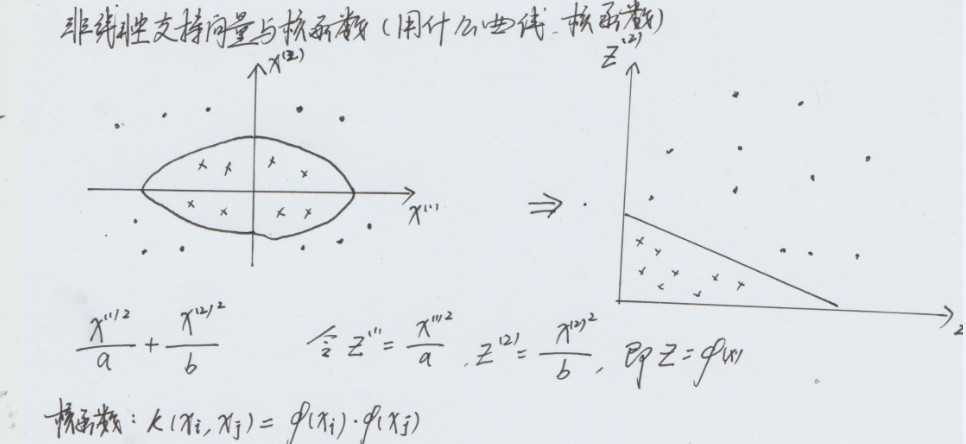 非线性支持向量与核函数(用什么曲线、核函数)
x⁽²⁾
z⁽²⁾
x⁽¹⁾
⇒
z
x⁽¹⁾²/a + x⁽²⁾²/b 令 z⁽¹⁾ = x⁽¹⁾²/a , z⁽²⁾ = x⁽²⁾²/b , 即 z = φ(x)
核函数: K(xᵢ, xⱼ) = φ(xᵢ)·φ(xⱼ)